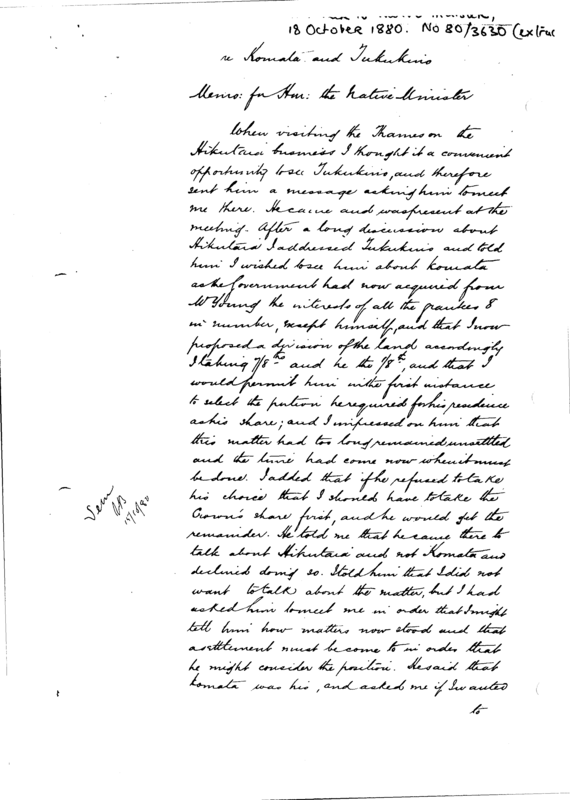 18 October 1880. No 80/3630 (extrac
re Komata and Tukukino
Memo: for Hon: the Native Minister
When visiting the Thames on the
Hikutaia business I thought it a convenient
opportunity to see Tukukino, and therefore
sent him a message asking him to meet
me there. He came and was present at the
meeting. After a long discussion about
Hikutaia I addressed Tukukino and told
him I wished to see him about Komata
as the Government had now acquired from
W Young the interests of all the grantees 8
in number, except himself, and that I now
proposed a division of the land accordingly
I taking 7/8ths and he the 1/8th, and that I
would permit him in the first instance
to select the portion he required for his residence
as his share; and I impressed on him that
this matter had too long remained unsettled
and the time had come now when it must
be done. I added that if he refused to take
his choice that I should have to take the
Crown's share first, and he would get the
remainder. He told me that he came there to
talk about Hikutaia and not Komata and
declined doing so. I told him that I did not
want to talk about the matter, but I had
asked him to meet me in order that I might
tell him how matters now stood and that
a settlement must be come to in order that
he might consider the position. He said that
Komata was his, and asked me if I wanted
to
Seen